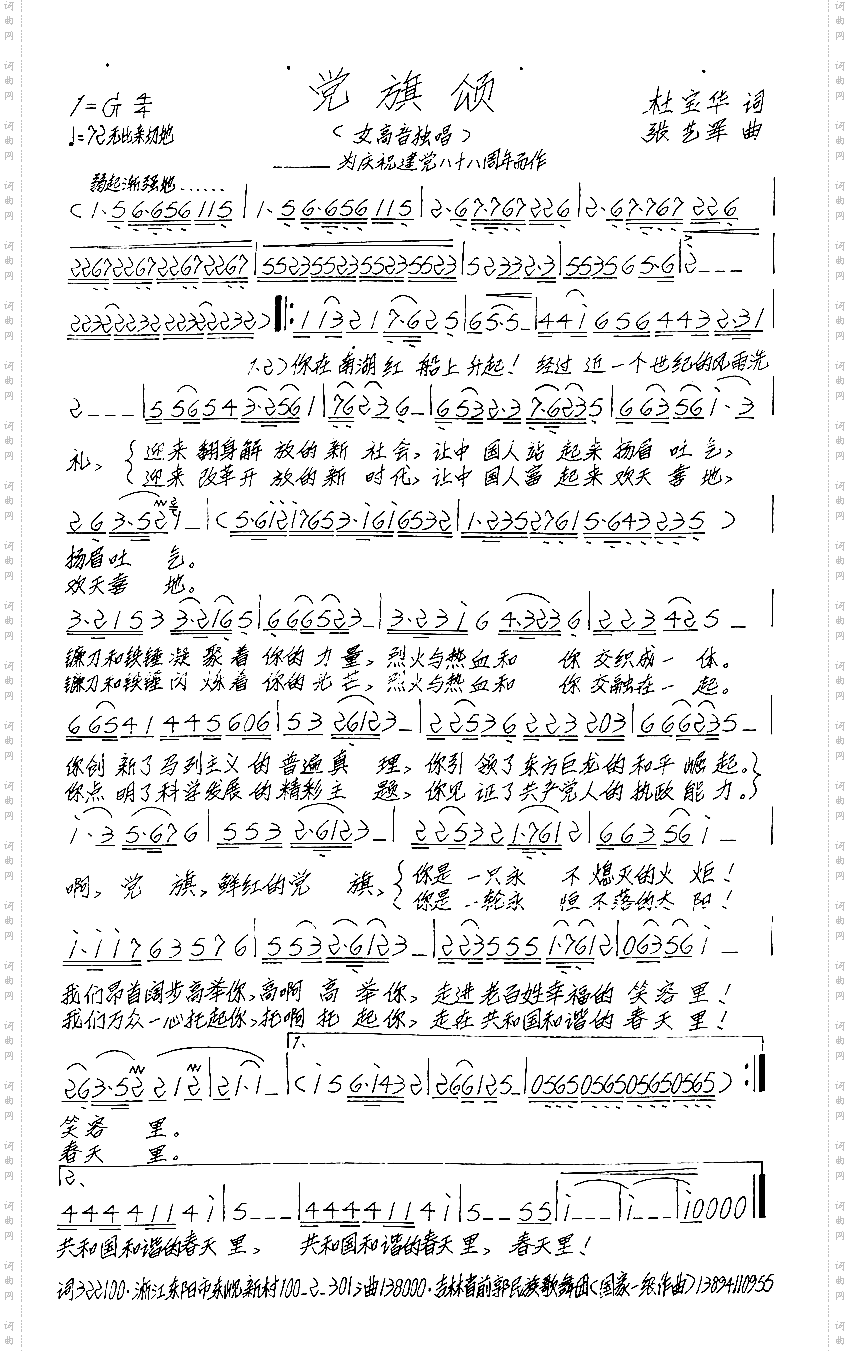 党旗颂
1=G 4/4
杜宝华 词
♩=72无比亲切地
(女高音独唱)
张艺军 曲
——为庆祝建党八十八周年而作
弱起渐强地……
(1·56·656115|1·56·656115|2·67·767226|2·67·767 226|
2267226722672267|5523552355235523|52332·3|553565·6|2---|
2232223222322232)‖:113217·625|65·5-|4416564432·31|
1.2.)你在南湖红 船上升起! 经过 近一个世纪的风雨洗
2---|556543·2561|76236-|6532·37·6235|663561·3|
礼, 迎来翻身解 放的新 社会, 让中国人站 起来扬眉吐气,
迎来 改革开 放的新 时代, 让中国人富 起来欢天喜地,
263·521-|(5·61217653·1616532|1·23527615·643235)|
扬眉吐 气。
欢天喜 地。
3·21533·2165|666523-|3·23164·3236|223425-|
镰刀和铁锤凝聚着你的力量, 烈火与热血和 你交织成一体。
镰刀和铁锤闪烁着你的光芒, 烈火与热血和 你交融在一起。
66541445606|5326123-|22536223203|6666235-|
你创新了马列主义的普遍真 理, 你引领了东方巨龙的和平崛起。
你点明了科学发展的精彩主 题, 你见证了共产党人的执政能力。
1·35·676|5532·6123-|225321·7612|663561-|
啊, 党 旗, 鲜红的党 旗, 你是一只永 不熄灭的火炬!
你是一轮永 恒不落的太阳!
1·11763576|5532·6123-|2235551·7612|063561-|
我们昂首阔步高举你, 高啊高举你, 走进老百姓幸福的笑容里!
我们万众一心托起你, 托啊托起你, 走在共和国和谐的春天里!
1.
263·52 212|21·1-|(156·1432|266125-|0565056505650565):‖
笑容 里。
春天 里。
2.
44441141|5---|44441141|5--55|1---|1---|10000‖
共和国和谐的春天里, 共和国和谐的春天里, 春天里!
词322100·浙江东阳市东岘新村100_2_301;曲138000·吉林省前郭民族歌舞团(国家一级作曲)13894110955
词曲网